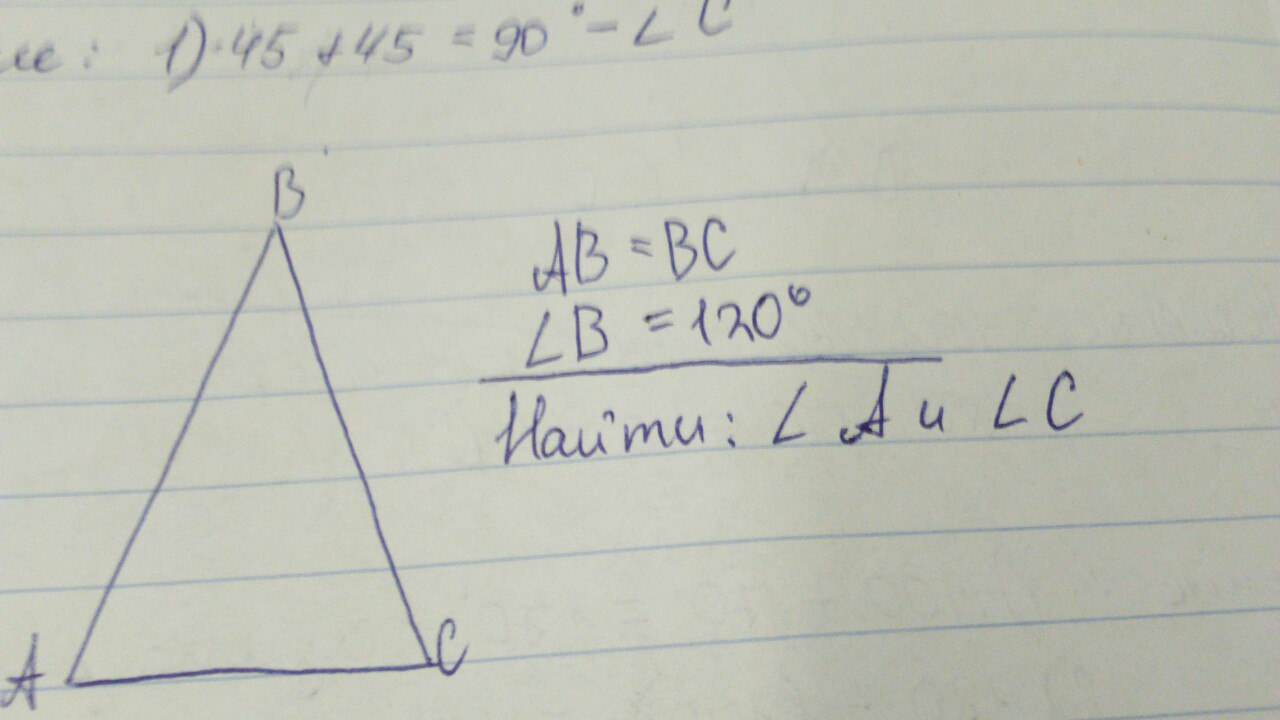 : 1) 45 + 45 = 90° - ∠ C
B
AB = BC
∠B = 120°
Найти: ∠ A и ∠ C
A
C